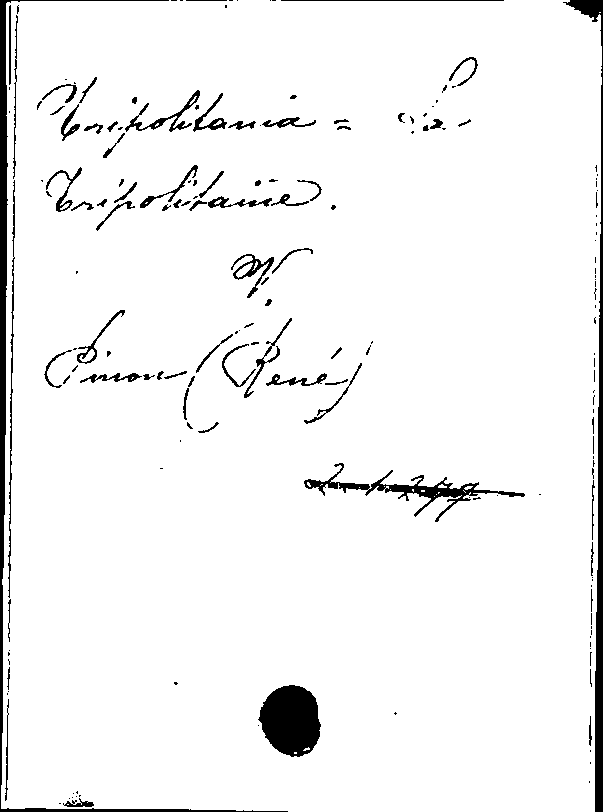 Tripolitania = La
Tripolitaine.
V.
Pinon (René)